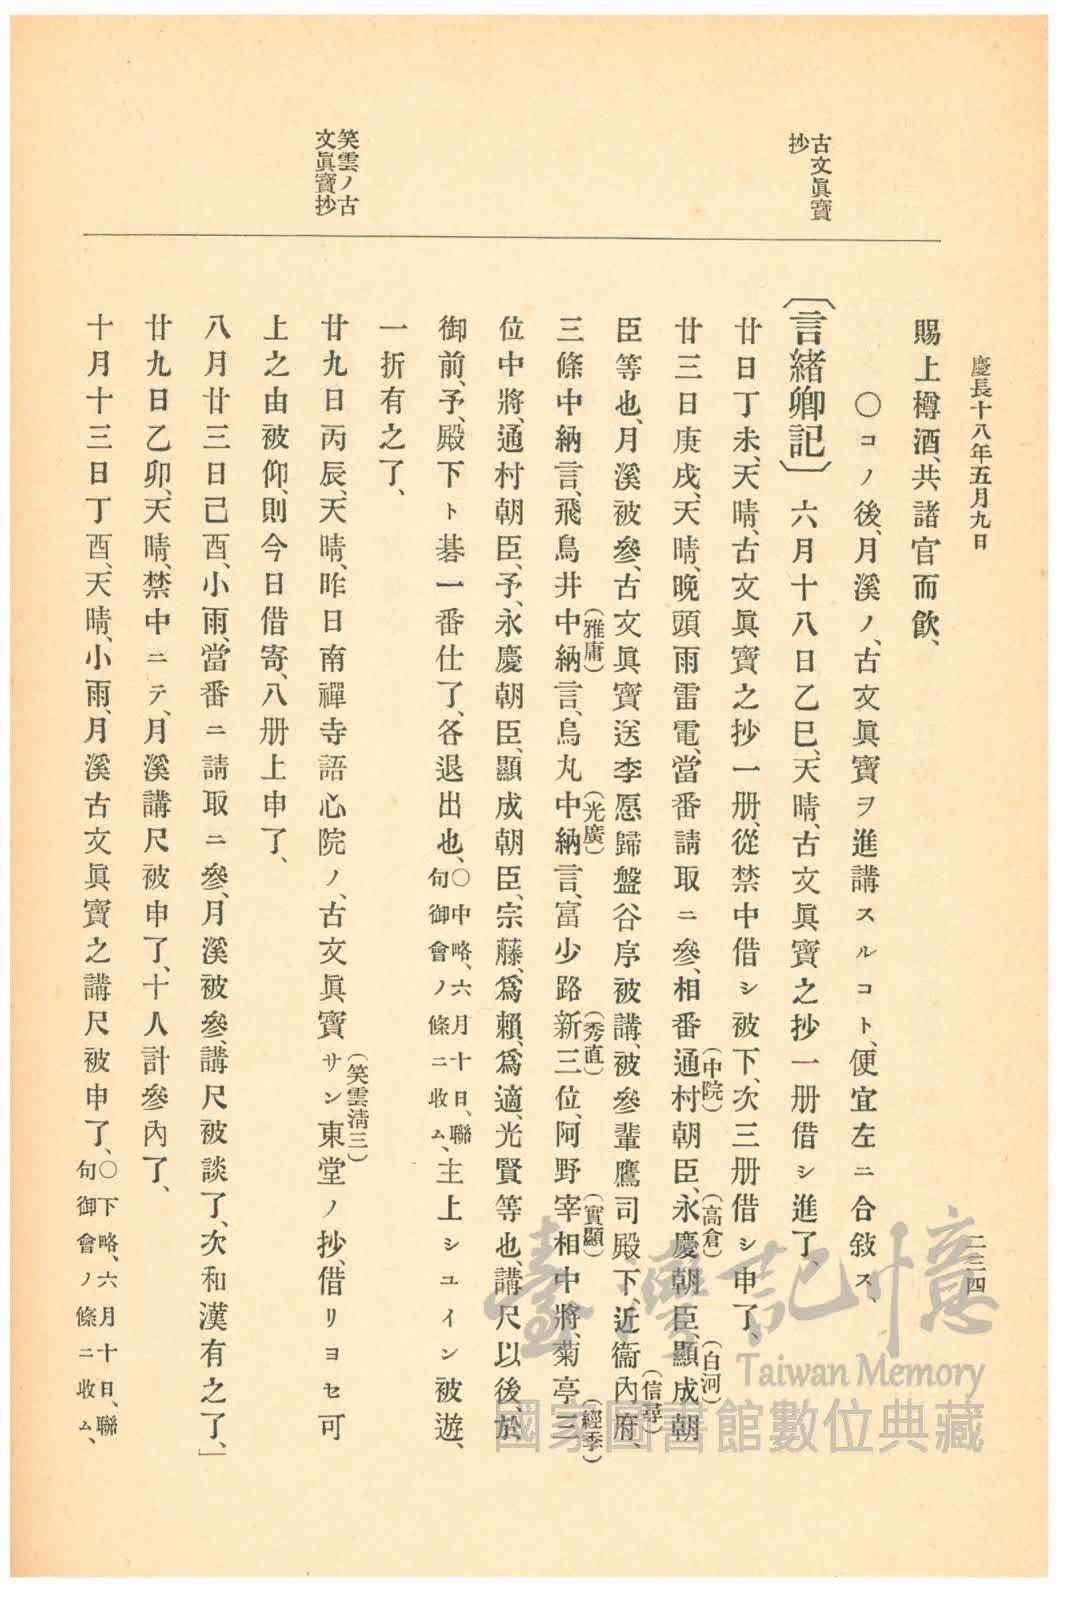 慶長十八年五月九日
二三四
古文眞寶
抄
笑雲ノ古
文眞寶抄
賜上樽酒、共諸官而飮、
〇コノ後、月溪ノ、古文眞寶ヲ進講スルコト、便宜左ニ合敍ス、
〔言緖卿記〕六月十八日乙巳、天晴、古文眞寶之抄一册借シ進了、
廿日丁未、天晴、古文眞寶之抄一册、從禁中借シ被下、次三册借シ申了、
廿三日庚戌、天晴、晩頭雨雷電、當番請取ニ參、相番通村(中院)朝臣、永慶(高倉)朝臣、顯成(白河)朝
臣等也、月溪被參、古文眞寶送李愿歸盤谷序被講、被參輩鷹司殿下、近衞內府(信尋)、
三條中納言、飛鳥井中納言(雅庸)、烏丸中納言(光廣)、富少路新三位(秀直)、阿野宰相中將(實顯)、菊亭三(經季)
位中將、通村朝臣、予、永慶朝臣、顯成朝臣、宗藤、爲賴、爲適、光賢等也、講尺以後、於
御前、予、殿下ト碁一番仕了、各退出也、〇中略、六月十日、聯句御會ノ條ニ收ム、主上シユイン被遊、
一折有之了、
廿九日丙辰、天晴、昨日南禪寺語心院ノ、古文眞寶サン(笑雲清三)東堂ノ抄、借リヨセ可
上之由被仰、則今日借寄、八册上申了、
八月廿三日己酉、小雨、當番ニ請取ニ參、月溪被參、講尺被談了、次和漢有之了、」
廿九日乙卯、天晴、禁中ニテ、月溪講尺被申了、十人計參內了、
十月十三日丁酉、天晴、小雨、月溪古文眞寶之講尺被申了、〇下略、六月十日、聯句御會ノ條ニ收ム、
臺灣記憶
Taiwan Memory
國家圖書館數位典藏